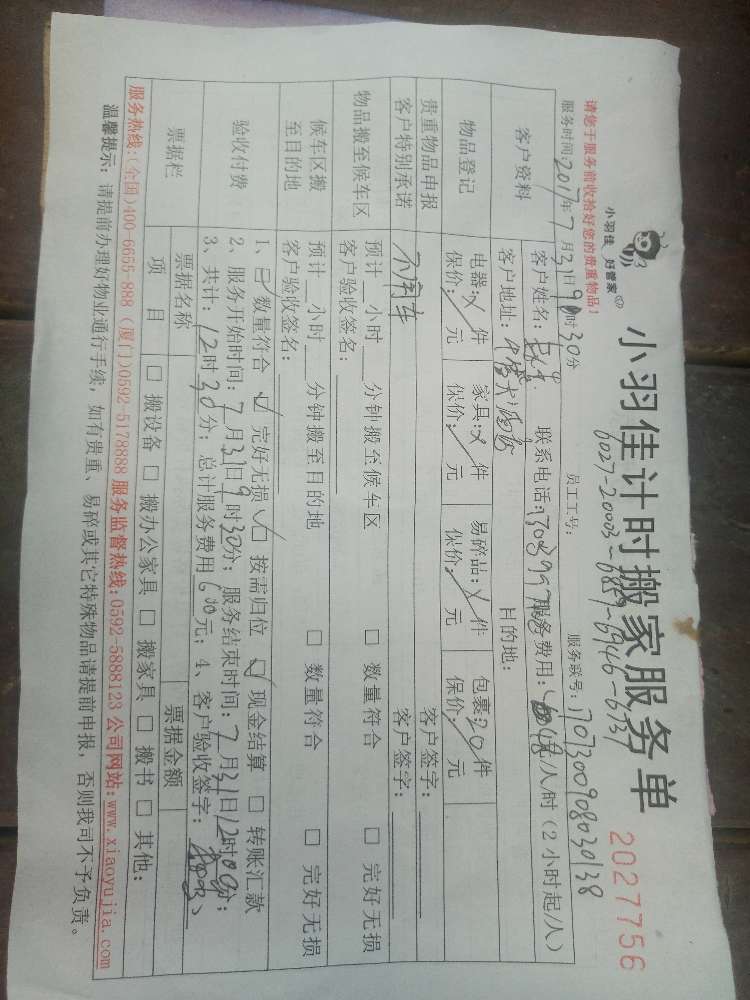 小羽佳 好管家
小羽佳计时搬家服务单
2027756
6027-20003-6889-6946-6737
请您于服务前收拾好您的贵重物品!
员工工号:
服务联号:1707300908030138
服务时间:2017年7月31日9时30分
客户资料
客户姓名:
联系电话:
服务费用: /人/时(2小时起/人)
客户地址:
目的地:
物品登记
电器: 件 家具: 件 易碎品: 件 包裹:20件
保价: 元 保价: 元 保价: 元 保价: 元
贵重物品申报
客户签字:
客户特别承诺
不用车
客户签字:
物品搬至候车区
预计 小时 分钟搬至候车区 □ 数量符合 □ 完好无损
客户验收签名:
候车区搬至目的地
预计 小时 分钟搬至目的地 □ 数量符合 □ 完好无损
客户验收签名:
验收付费
1、☑数量符合 ☑ 完好无损 ☑ 按需归位 ☑ 现金结算 □ 转账汇款
2、服务开始时间:7月31日9时30分;服务结束时间:7月31日12时00分;
3、共计:12时30分;总计服务费用600元;4、客户验收签字:
票据栏
票据名称
票据金额
项 目 □ 搬设备 □ 搬办公家具 □ 搬家具 □ 搬书 □ 其他:
服务热线:(全国)400-6655-888 (厦门)0592-5178888 服务监督热线:0592-5888123 公司网站:www.xiaoyujia.com
温馨提示:请提前办理好物业通行手续,如有贵重、易碎或其它特殊物品请提前申报,否则我司不予负责。